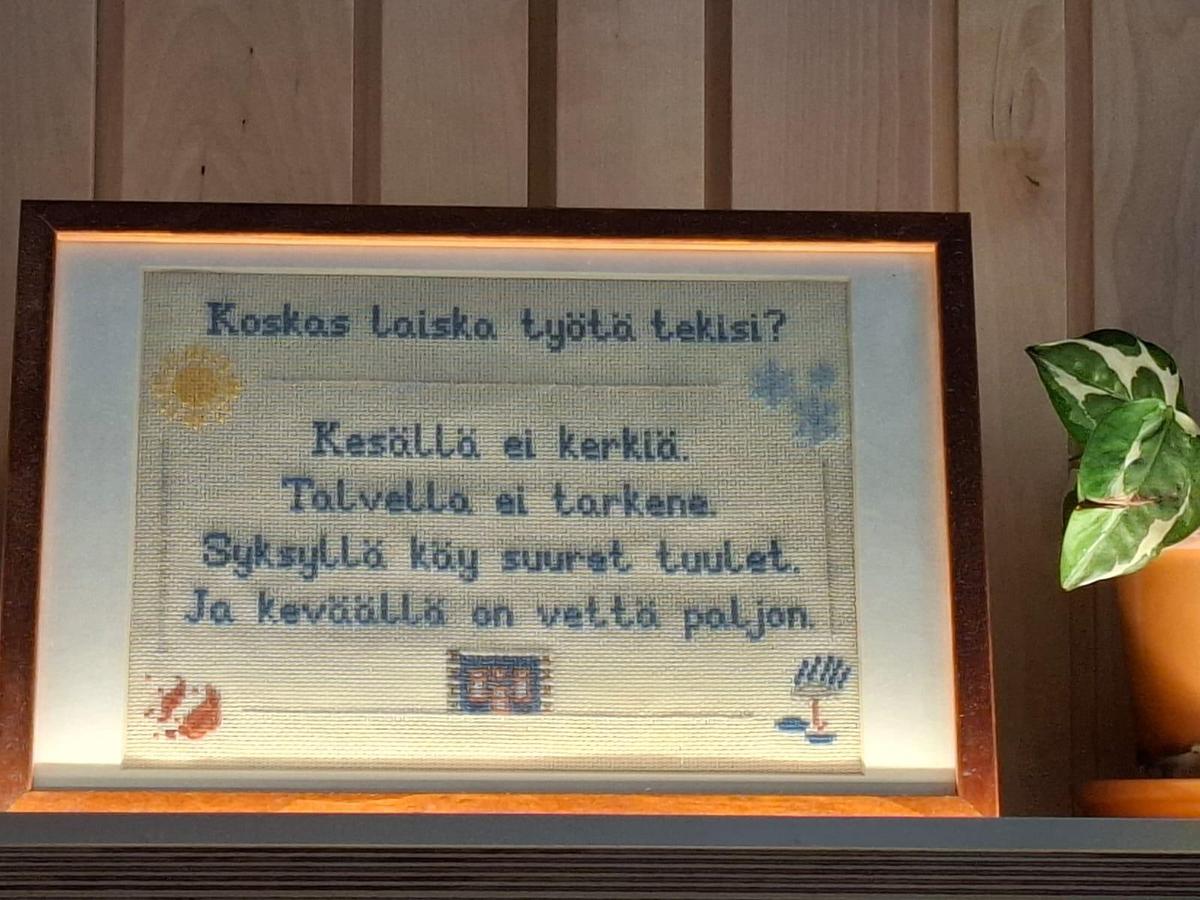 Koskas laiska työtä tekisi?
Kesällä ei kerkiä.
Talvella ei tarkene.
Syksyllä käy suuret tuulet.
Ja keväällä on vettä paljon.